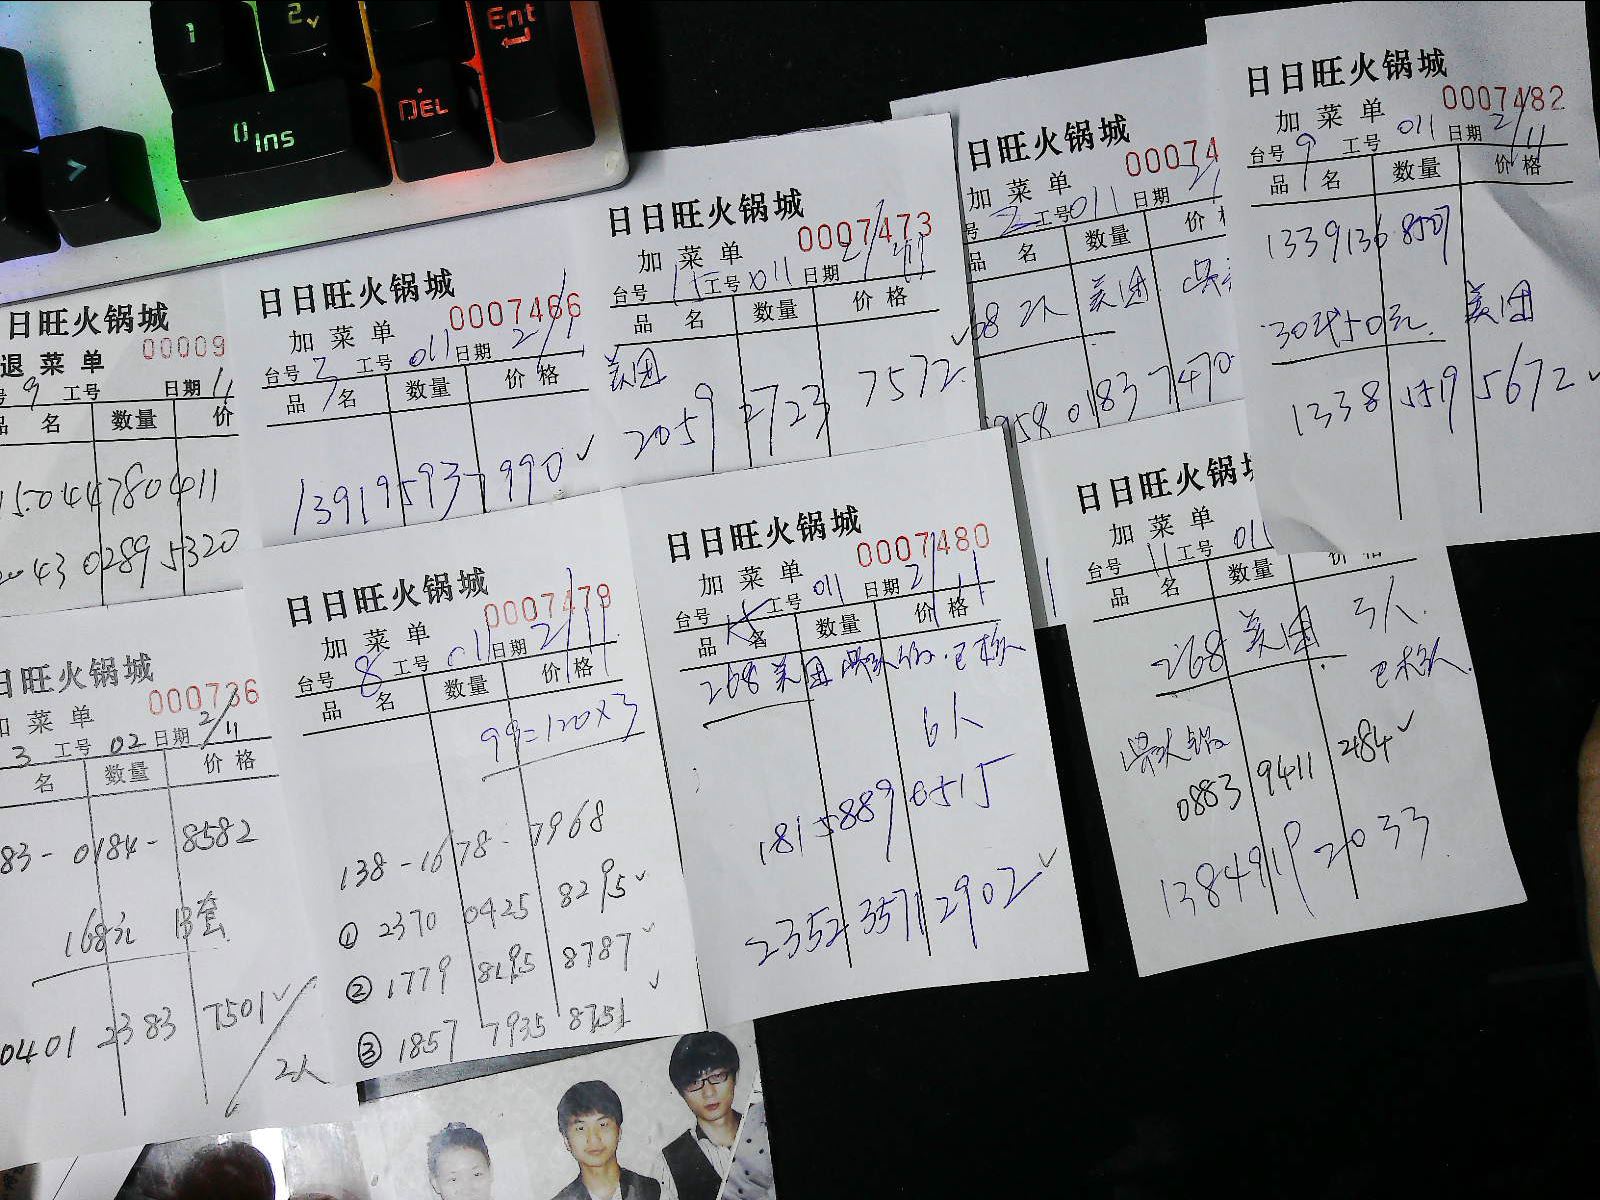 1
2
Ent
0 Ins
DEL
日日旺火锅城
退菜单 00009
号 9 工号 日期 11
品名 数量 价
15044780411
2043 0289 5320
日日旺火锅城
加菜单 0007466
台号 7 工号 011 日期 2/11
品名 数量 价格
13919593 7990 ✓
日日旺火锅城
加菜单 0007473
台号 15 工号 011 日期 2/11
品名 数量 价格
美团
2059 2723 7572 ✓
日日旺火锅城
加菜单 00074
号 2 工号 011 日期 2/
品名 数量 价格
68 2人 美团
958 0183 7470
日日旺火锅城
加菜单 0007482
台号 9 工号 011 日期 2/11
品名 数量 价格
1339136 8507
30代50元 美团
1338 1519 5672 ✓
日旺火锅城
加菜单 000736
3 工号 02 日期 2/11
名 数量 价格
83-0184-8582
168元 B套
0401 2383 7501 ✓
2人
日日旺火锅城
加菜单 0007479
台号 8 工号 011 日期 2/11
品名 数量 价格
99=120×3
138-1678-7968
① 2370 0425 8295 ✓
② 1779 8195 8787 ✓
③ 1857 7935 8751 ✓
日日旺火锅城
加菜单 0007480
台号 15 工号 011 日期 2/11
品名 数量 价格
268 美团 已核
6人
1815889 0515
2352 3571 2902 ✓
日日旺火锅城
加菜单
台号 11 工号 011
品名 数量 价格
268 美团 3人
已核
0883 9411 2484 ✓
1384919 2033